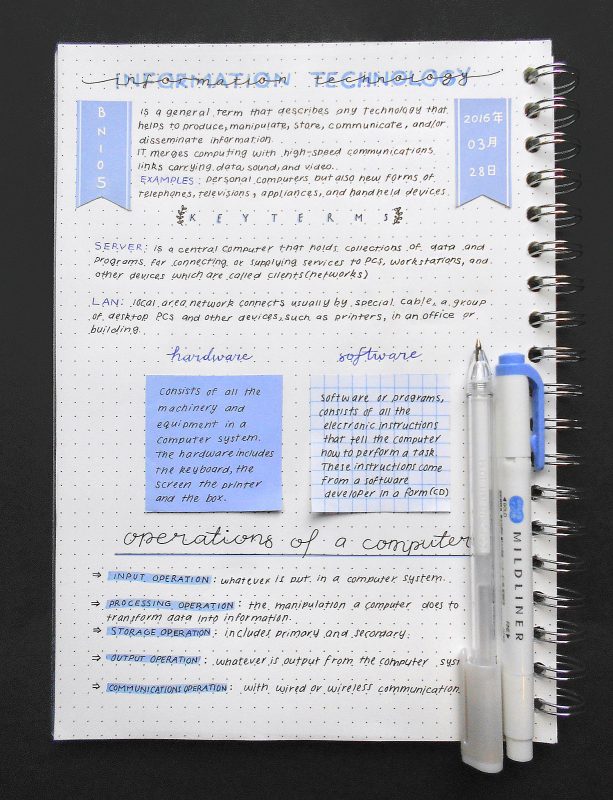 INFORMATION TECHNOLOGY
BN105
2016年
03月
28日
is a general term that describes any technology that
helps to produce, manipulate, store, communicate, and/or
disseminate information.
IT merges computing with high-speed communications
links carrying data, sound, and video.
EXAMPLES: personal computers but also new forms of
telephones, televisions, appliances, and handheld devices
KEY TERMS
SERVER: is a central computer that holds collections of data and
programs for connecting or supplying services to PCs, workstations, and
other devices which are called clients (networks)
LAN: local area network connects usually by special cable, a group
of desktop PCs and other devices, such as printers, in an office or
building.
hardware
Consists of all the
machinery and
equipment in a
computer system.
The hardware includes
the keyboard, the
screen the printer
and the box.
software
Software or programs,
consists of all the
electronic instructions
that tell the computer
how to perform a task.
These instructions come
from a software
developer in a form (CD)
operations of a computer
⇒ INPUT OPERATION: whatever is put in a computer system.
⇒ PROCESSING OPERATION: the manipulation a computer does to
transform data into information.
⇒ STORAGE OPERATION: includes primary and secondary.
⇒ OUTPUT OPERATION: whatever is output from the computer syst
⇒ COMMUNICATIONS OPERATION: with wired or wireless communication.
MILDLINER